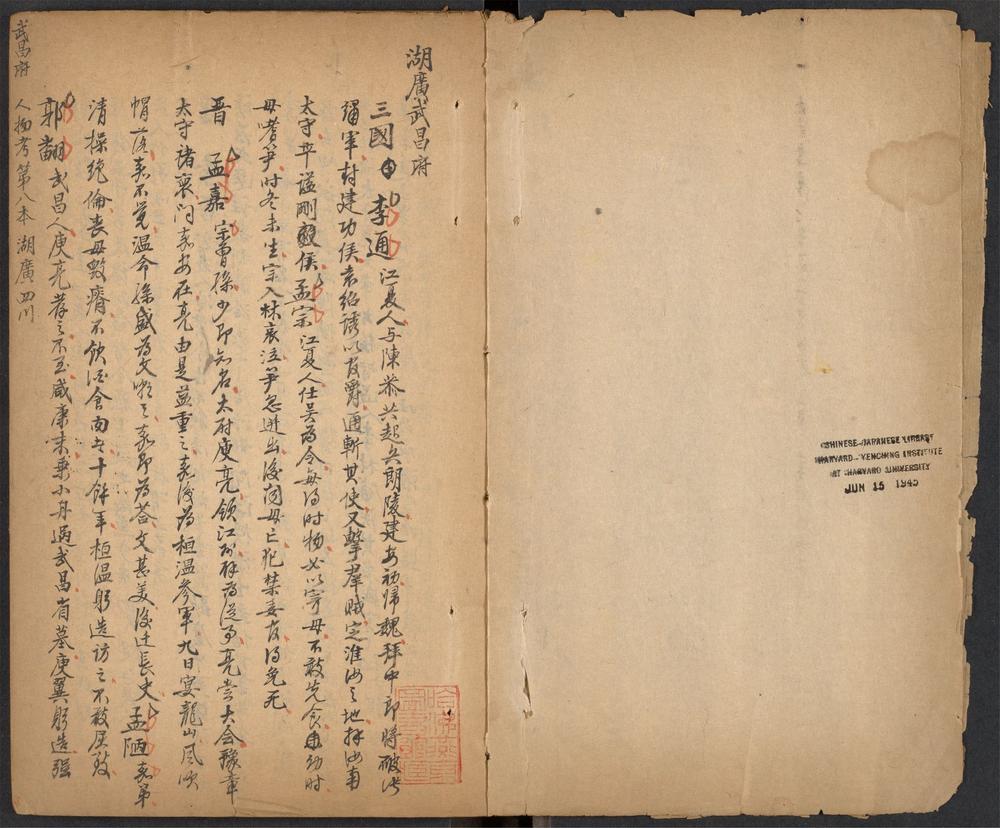 湖廣武昌府
三國 李通 江夏人与陳恭共起兵朗陵建安初歸魏拜中郎將破張
繡軍封建功侯袁紹誘以官爵通斬其使又擊群賊定淮汝之地拜汝南
太守卒諡剛毅侯孟宗江夏人仕吳為令每得时物必以寄母不敢先食幼时
母嗜笋时冬未生宗入林哀泣笋忽迸出後闻母亡犯禁委官得免死
晋 孟嘉 宗曾孫少即知名太尉庾亮領江州辟為從事亮嘗大会豫章
太守褚裒问嘉安在亮由是益重之嘉後為桓温參軍九日宴龍山風吹
帽落嘉不覚温令孫盛為文嘲之嘉即為荅文甚美後迁長史孟陋嘉弟
清操绝倫丧母毀瘠不飲酒食肉者十餘年桓温躬造訪之不敢屈致
郭翻武昌人庾亮荐之不至咸康末乘小舟過武昌省墓庾翼躬造强
武昌府
人物考第八本 湖廣 四川
CHINESE-JAPANESE LIBRARY
HARVARD-YENCHING INSTITUTE
AT HARVARD UNIVERSITY
JUN 15 1945